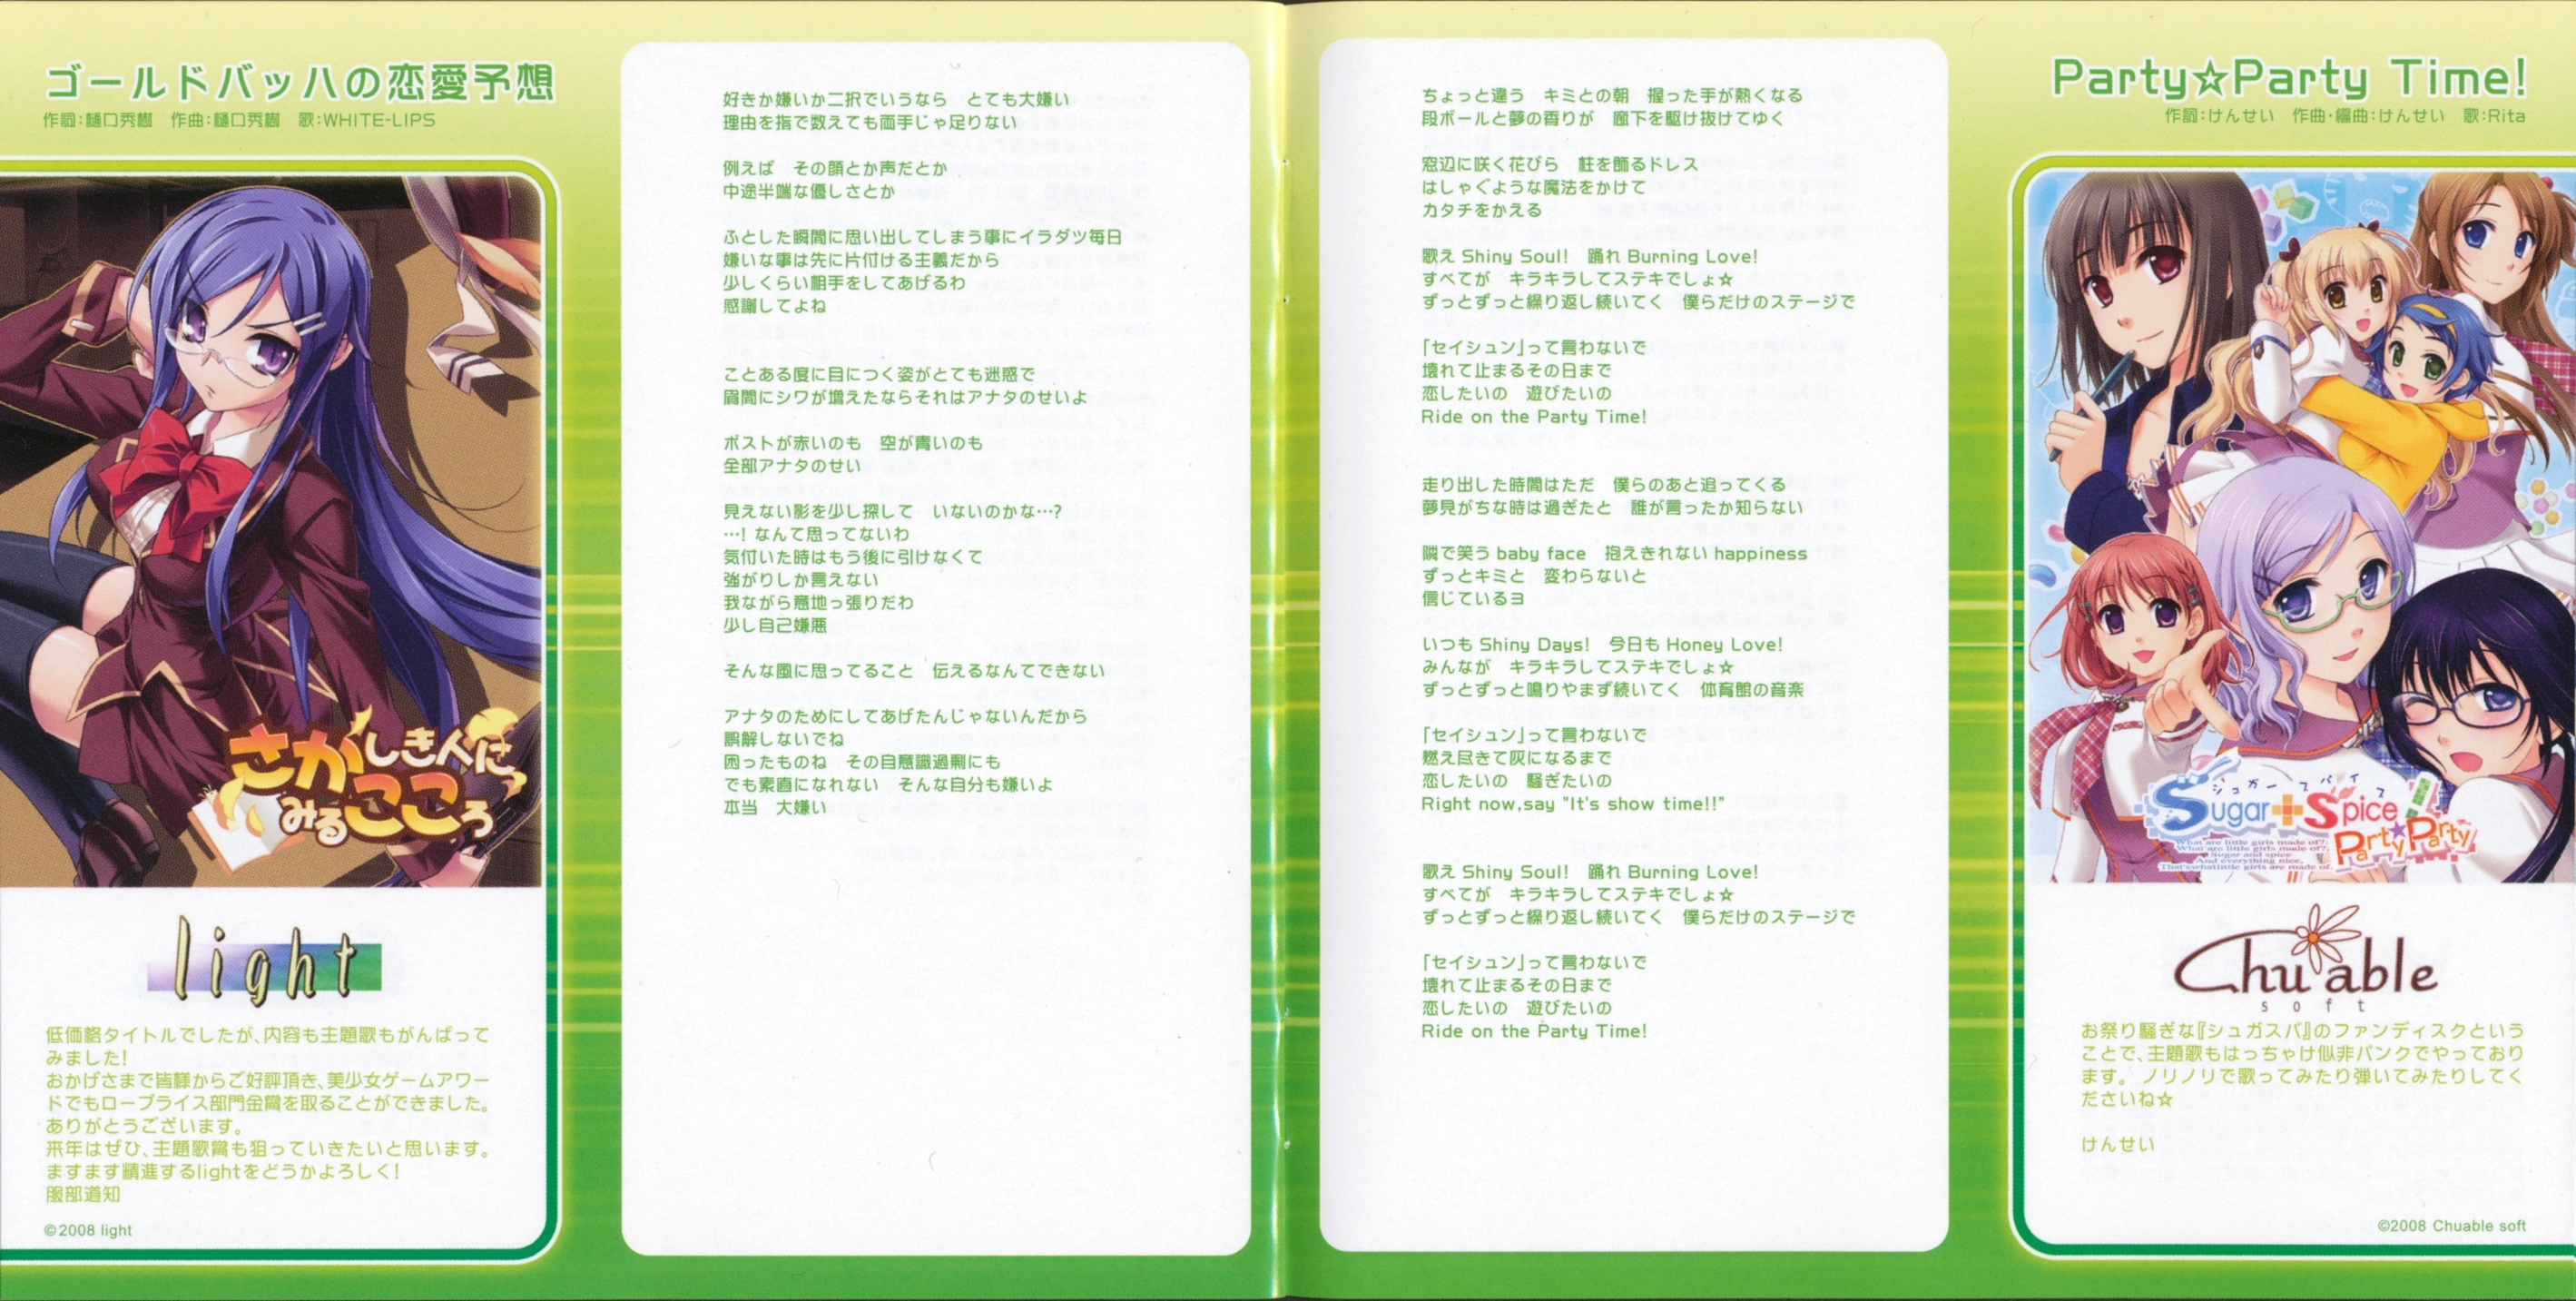 ゴールドバッハの恋愛予想
作詞:樋口秀樹　作曲:樋口秀樹　歌:WHITE-LIPS
さかしき人にみるこころ
light
低価格タイトルでしたが、内容も主題歌もがんばって
みました!
おかげさまで皆様からご好評頂き、美少女ゲームアワー
ドでもロープライス部門金賞を取ることができました。
ありがとうございます。
来年はぜひ、主題歌賞も狙っていきたいと思います。
ますます精進するlightをどうかよろしく!
服部道知
©2008 light
好きか嫌いか二択でいうなら　とても大嫌い
理由を指で数えても両手じゃ足りない
例えば　その顔とか声だとか
中途半端な優しさとか
ふとした瞬間に思い出してしまう事にイラダツ毎日
嫌いな事は先に片付ける主義だから
少しくらい相手をしてあげるわ
感謝してよね
ことある度に目につく姿がとても迷惑で
眉間にシワが増えたならそれはアナタのせいよ
ポストが赤いのも　空が青いのも
全部アナタのせい
見えない影を少し探して　いないのかな…?
…! なんて思ってないわ
気付いた時はもう後に引けなくて
強がりしか言えない
我ながら意地っ張りだわ
少し自己嫌悪
そんな風に思ってること　伝えるなんてできない
アナタのためにしてあげたんじゃないんだから
誤解しないでね
困ったものね　その自意識過剰にも
でも素直になれない　そんな自分も嫌いよ
本当　大嫌い
ちょっと違う　キミとの朝　握った手が熱くなる
段ボールと夢の香りが　廊下を駆け抜けてゆく
窓辺に咲く花びら　柱を飾るドレス
はしゃぐような魔法をかけて
カタチをかえる
歌え Shiny Soul!　踊れ Burning Love!
すべてが　キラキラしてステキでしょ☆
ずっとずっと繰り返し続いてく　僕らだけのステージで
「セイシュン」って言わないで
壊れて止まるその日まで
恋したいの　遊びたいの
Ride on the Party Time!
走り出した時間はただ　僕らのあと追ってくる
夢見がちな時は過ぎたと　誰が言ったか知らない
隣で笑う baby face　抱えきれない happiness
ずっとキミと　変わらないと
信じているヨ
いつも Shiny Days!　今日も Honey Love!
みんなが　キラキラしてステキでしょ☆
ずっとずっと鳴りやまず続いてく　体育館の音楽
「セイシュン」って言わないで
燃え尽きて灰になるまで
恋したいの　騒ぎたいの
Right now,say "It's show time!!"
歌え Shiny Soul!　踊れ Burning Love!
すべてが　キラキラしてステキでしょ☆
ずっとずっと繰り返し続いてく　僕らだけのステージで
「セイシュン」って言わないで
壊れて止まるその日まで
恋したいの　遊びたいの
Ride on the Party Time!
Party☆Party Time!
作詞:けんせい　作曲・編曲:けんせい　歌:Rita
シュガースパイス
Sugar+Spice!
Party★Party
What are little girls made of?
What are little girls made of?
Sugar and spice
And everything nice,
That's what little girls are made of.
Chu'able
soft
お祭り騒ぎな『シュガスパ』のファンディスクという
ことで、主題歌もはっちゃけ似非パンクでやっており
ます。ノリノリで歌ってみたり弾いてみたりしてく
ださいね☆
けんせい
©2008 Chuable soft